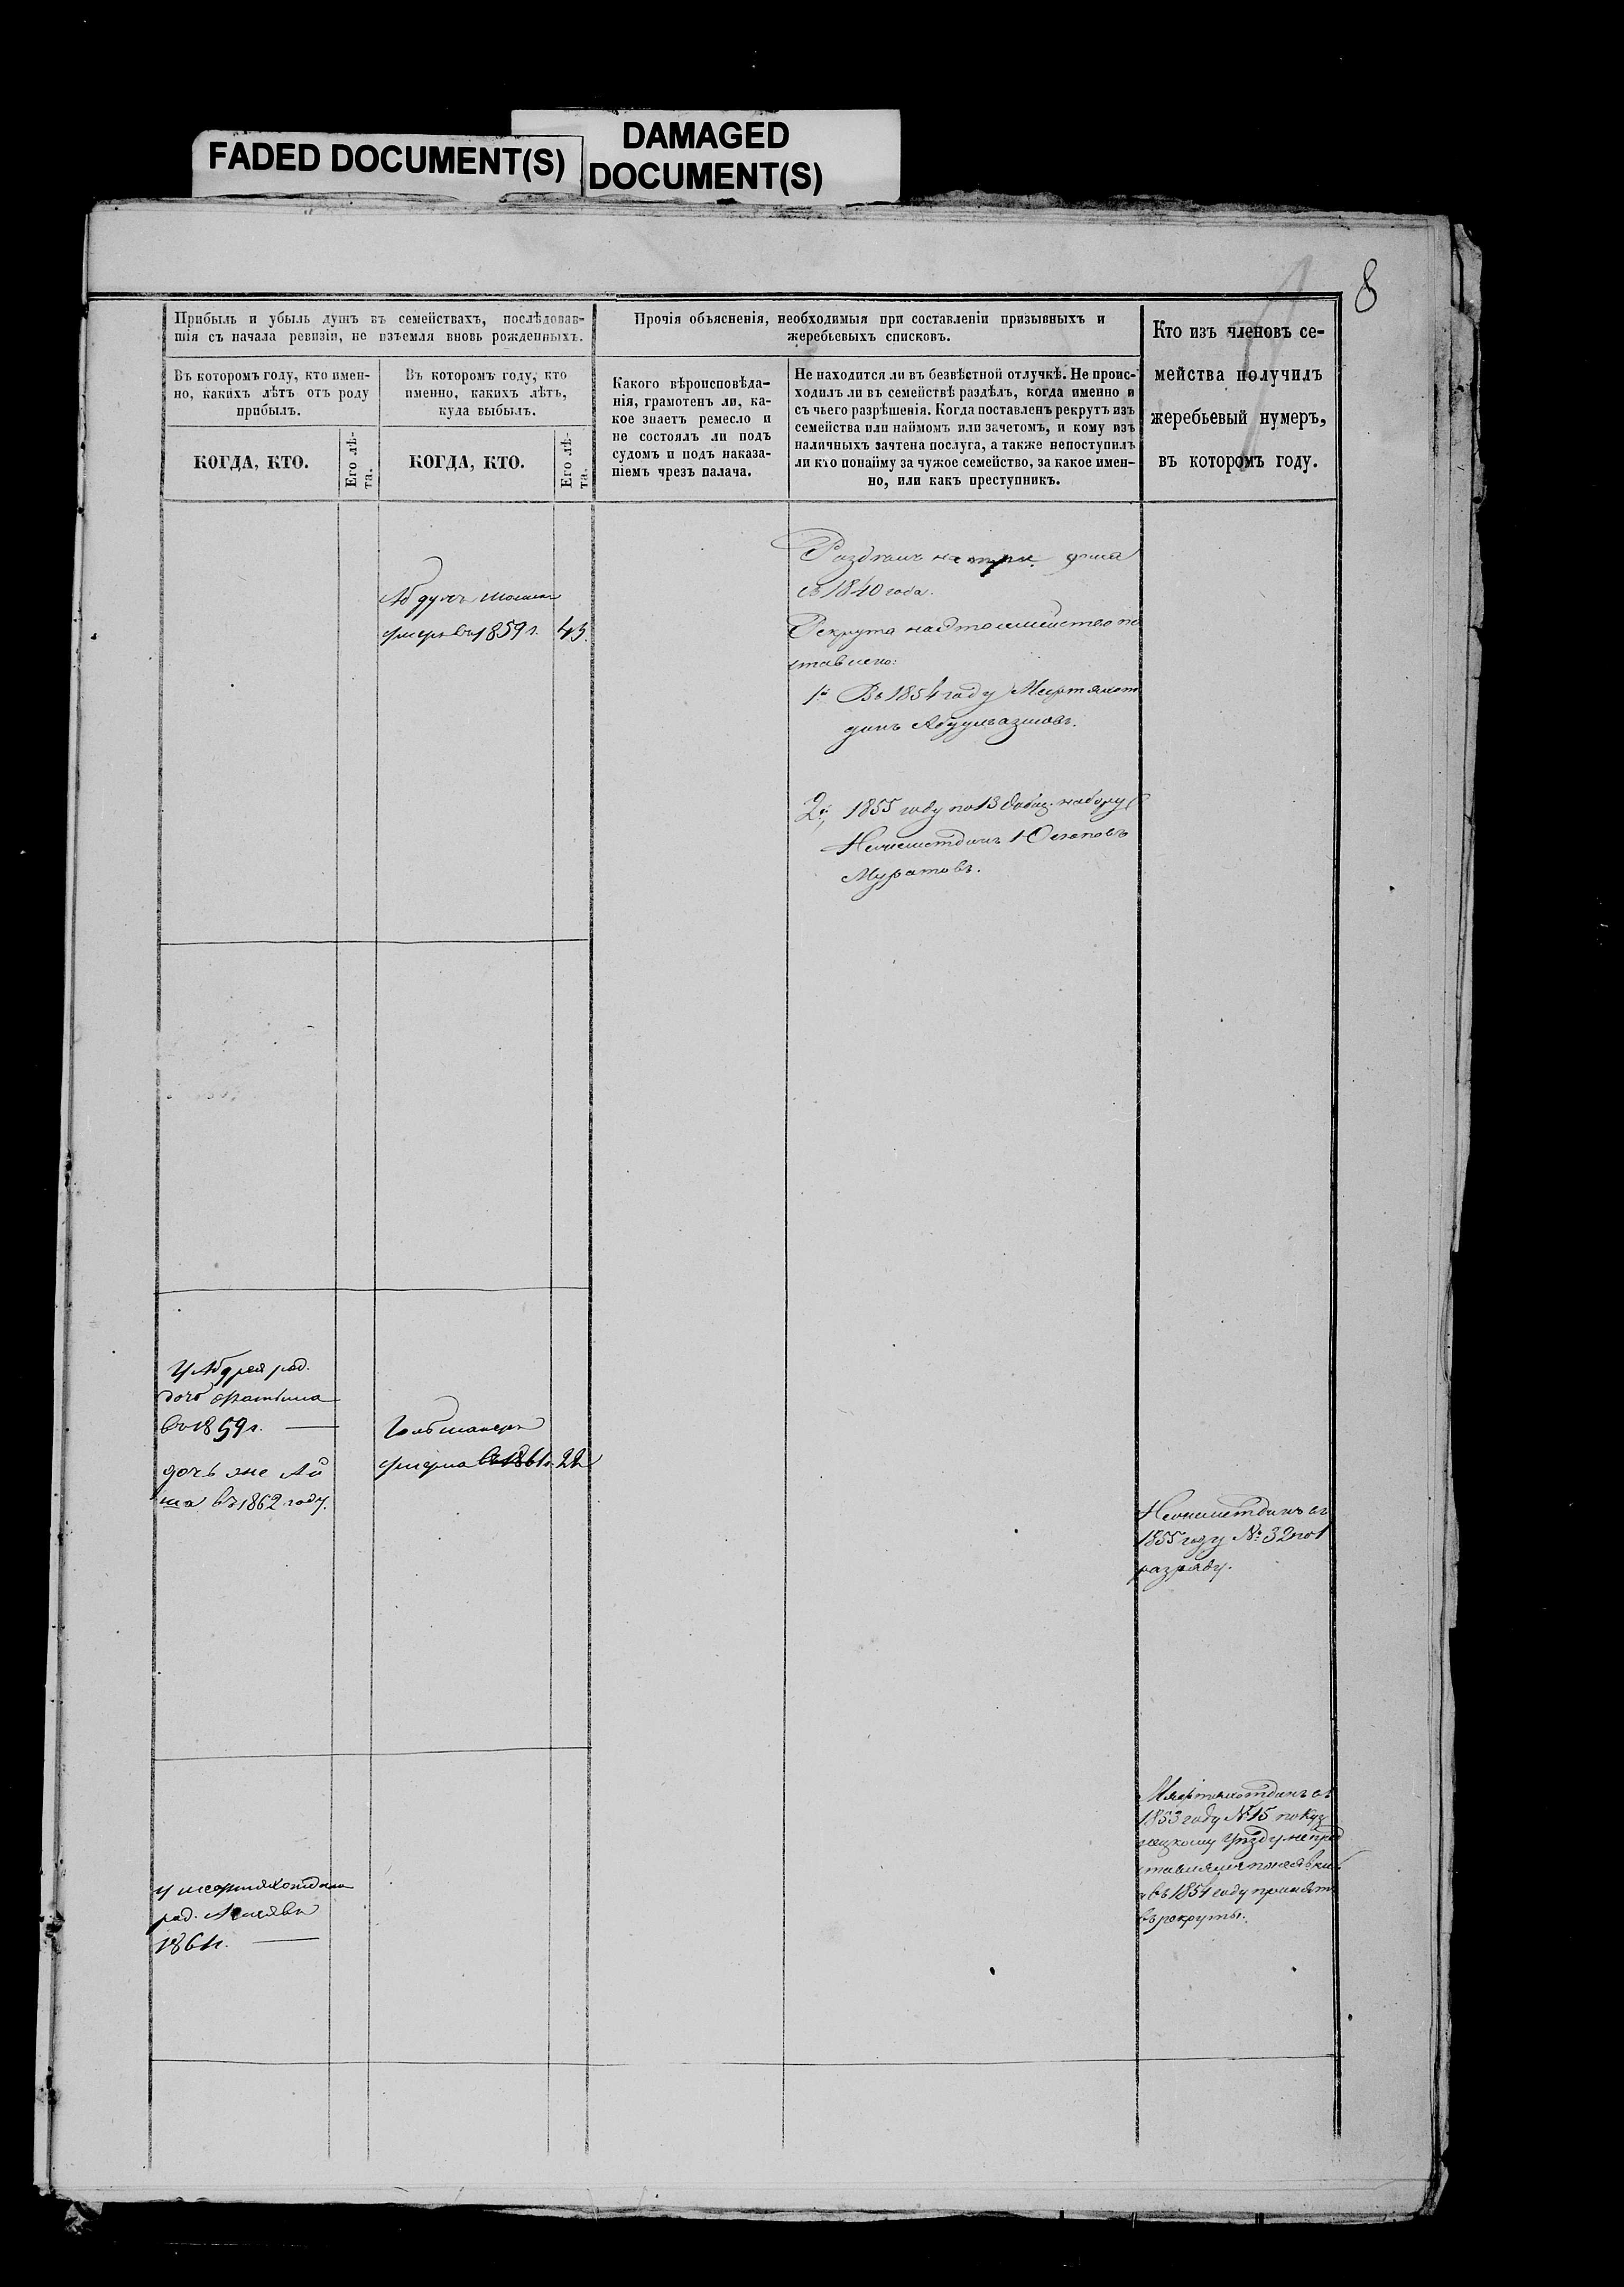 FADED DOCUMENT(S)
DAMAGED
DOCUMENT(S)
8
Прибыль и убыль душъ въ семействахъ, послѣдовав-
шія съ начала ревизіи, не изъемля вновь рожденныхъ.
Въ которомъ году, кто имен-
но, какихъ лѣтъ отъ роду
прибылъ.
КОГДА, КТО.
Его лѣ-
та.
Въ которомъ году, кто
именно, какихъ лѣтъ,
куда выбылъ.
КОГДА, КТО.
Его лѣ-
та.
Прочія объясненія, необходимыя при составленіи призывныхъ и
жеребьевыхъ списковъ.
Какого вѣроисповѣда-
нія, грамотенъ ли, ка-
кое знаетъ ремесло и
не состоялъ ли подъ
судомъ и подъ наказа-
ніемъ чрезъ палача.
Не находится ли въ безвѣстной отлучкѣ. Не проис-
ходилъ ли въ семействѣ раздѣлъ, когда именно и
съ чьего разрѣшенія. Когда поставленъ рекрутъ изъ
семейства или наймомъ или зачетомъ, и кому изъ
наличныхъ зачтена послуга, а также непоступилъ
ли кто понайму за чужое семейство, за какое имен-
но, или какъ преступникъ.
Кто изъ членовъ се-
мейства получилъ
жеребьевый нумеръ,
въ которомъ году.
Абдулъ
умеръ въ 1859 г. 43.
на три
съ 1840 года.
Рекрута
ставлено:
1й Въ 1854 году
динъ Абдулвазизовъ.
2й 1855 году по 13 набору
Юсуповъ
Муратовъ.
У Абдрея род.
дочь Фатыма
въ 1859 г.
дочь Ай
ша въ 1862 году.
умерла въ 1861 г. 22
въ
1855 году № 32 по 1
разряду.
въ
1853 году № 15 по Куз
нецкому Уѣзду
въ 1854 году принятъ
въ рекруты.
у
род.
1861 г.